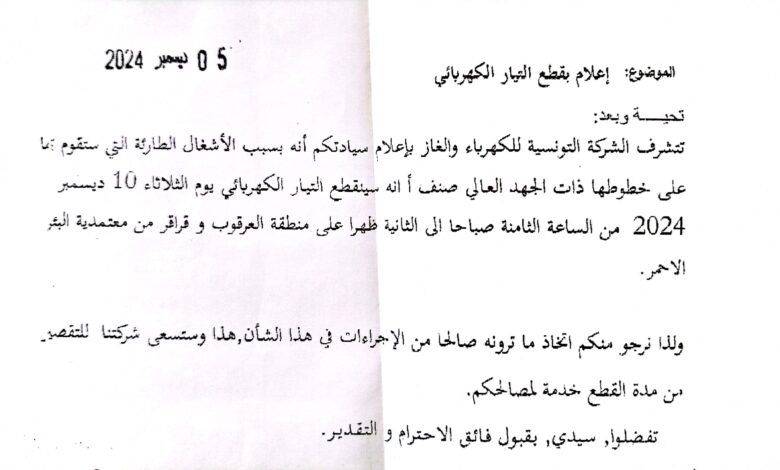 05 ديسمبر 2024
الموضوع: إعلام بقطع التيار الكهربائي
تحيـــة وبعد:
تتشرف الشركة التونسية للكهرباء والغاز بإعلام سيادتكم أنه بسبب الأشغال الطارئة التي ستقوم بها
على خطوطها ذات الجهد العالي صنف أ انه سينقطع التيار الكهربائي يوم الثلاثاء 10 ديسمبر
2024 من الساعة الثامنة صباحا الى الثانية ظهرا على منطقة العرقوب و قراقر من معتمدية البئر
الاحمر.
ولذا نرجو منكم اتخاذ ما ترونه صالحا من الإجراءات في هذا الشأن,هذا وستسعى شركتنا للتقصير
من مدة القطع خدمة لمصالحكم.
تفضلوا, سيدي, بقبول فائق الاحترام و التقدير.